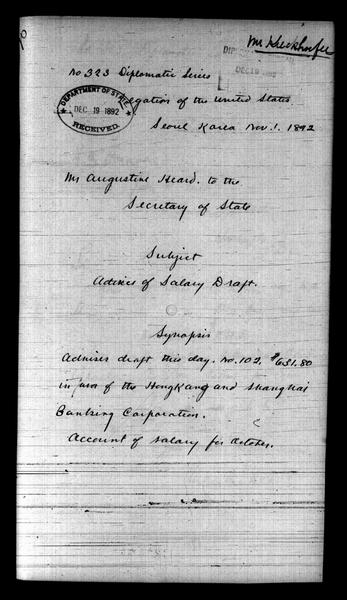 Mr Kieckhoefer
No 323 Diplomatic Series
DEPARTMENT OF STATE
DEC 19 1892
RECEIVED
DEC 19 1892
Legation of the United States
Seoul Korea Nov. 1. 1892
Mr Augustine Heard. to the
Secretary of State
Subject
Advice of Salary Draft.
Synopsis
Advises draft this day. No. 102. $651.80
in favor of the HongKong and Shanghai
Banking Corporation.
Account of salary for October.